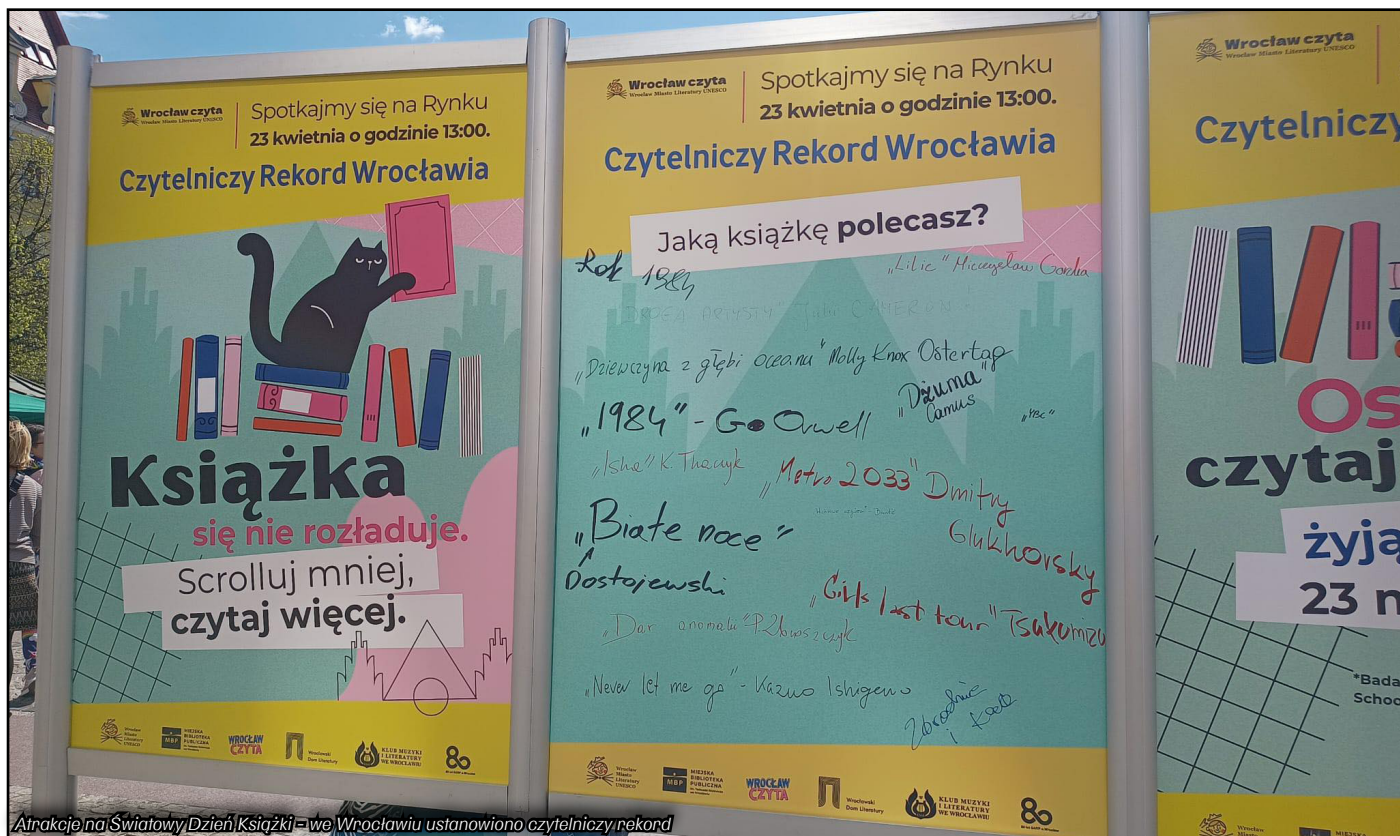 Wrocław czyta
Wrocław Miasto Literatury UNESCO
Spotkajmy się na Rynku
23 kwietnia o godzinie 13:00.
Czytelniczy Rekord Wrocławia
Książka
się nie rozładuje.
Scrolluj mniej,
czytaj więcej.
Wrocław
Miasto
Literatury
UNESCO
MBP
MIEJSKA
BIBLIOTEKA
PUBLICZNA
WROCŁAW
CZYTA
Wrocławski
Dom Literatury
KLUB MUZYKI
I LITERATURY
WE WROCŁAWIU
80
Wrocław czyta
Wrocław Miasto Literatury UNESCO
Spotkajmy się na Rynku
23 kwietnia o godzinie 13:00.
Czytelniczy Rekord Wrocławia
Jaką książkę polecasz?
Rok 1984
„Lilie" Mieczysław Gorzka
DROGA ARTYSTY
„Dziewczyna z głębi oceanu" Molly Knox Ostertag
„Dżuma"
Camus
„1984" - Orwell
„Metro 2033" Dmitry
Glukhovsky
„Białe noce"
Dostojewski
„Girls last tour" Tsukumizu
„Dar anomalii"
„Never let me go" - Kazuo
Zbrodnia
i
Wrocław
Miasto
Literatury
UNESCO
MBP
MIEJSKA
BIBLIOTEKA
PUBLICZNA
WROCŁAW
CZYTA
Wrocławski
Dom Literatury
KLUB MUZYKI
I LITERATURY
WE WROCŁAWIU
80
Wrocław czyta
Wrocław Miasto Literatury UNESCO
Czytelniczy
Os
czytaj
żyją
23 m
*Bada
Schoo
Atrakcje na Światowy Dzień Książki - we Wrocławiu ustanowiono czytelniczy rekord